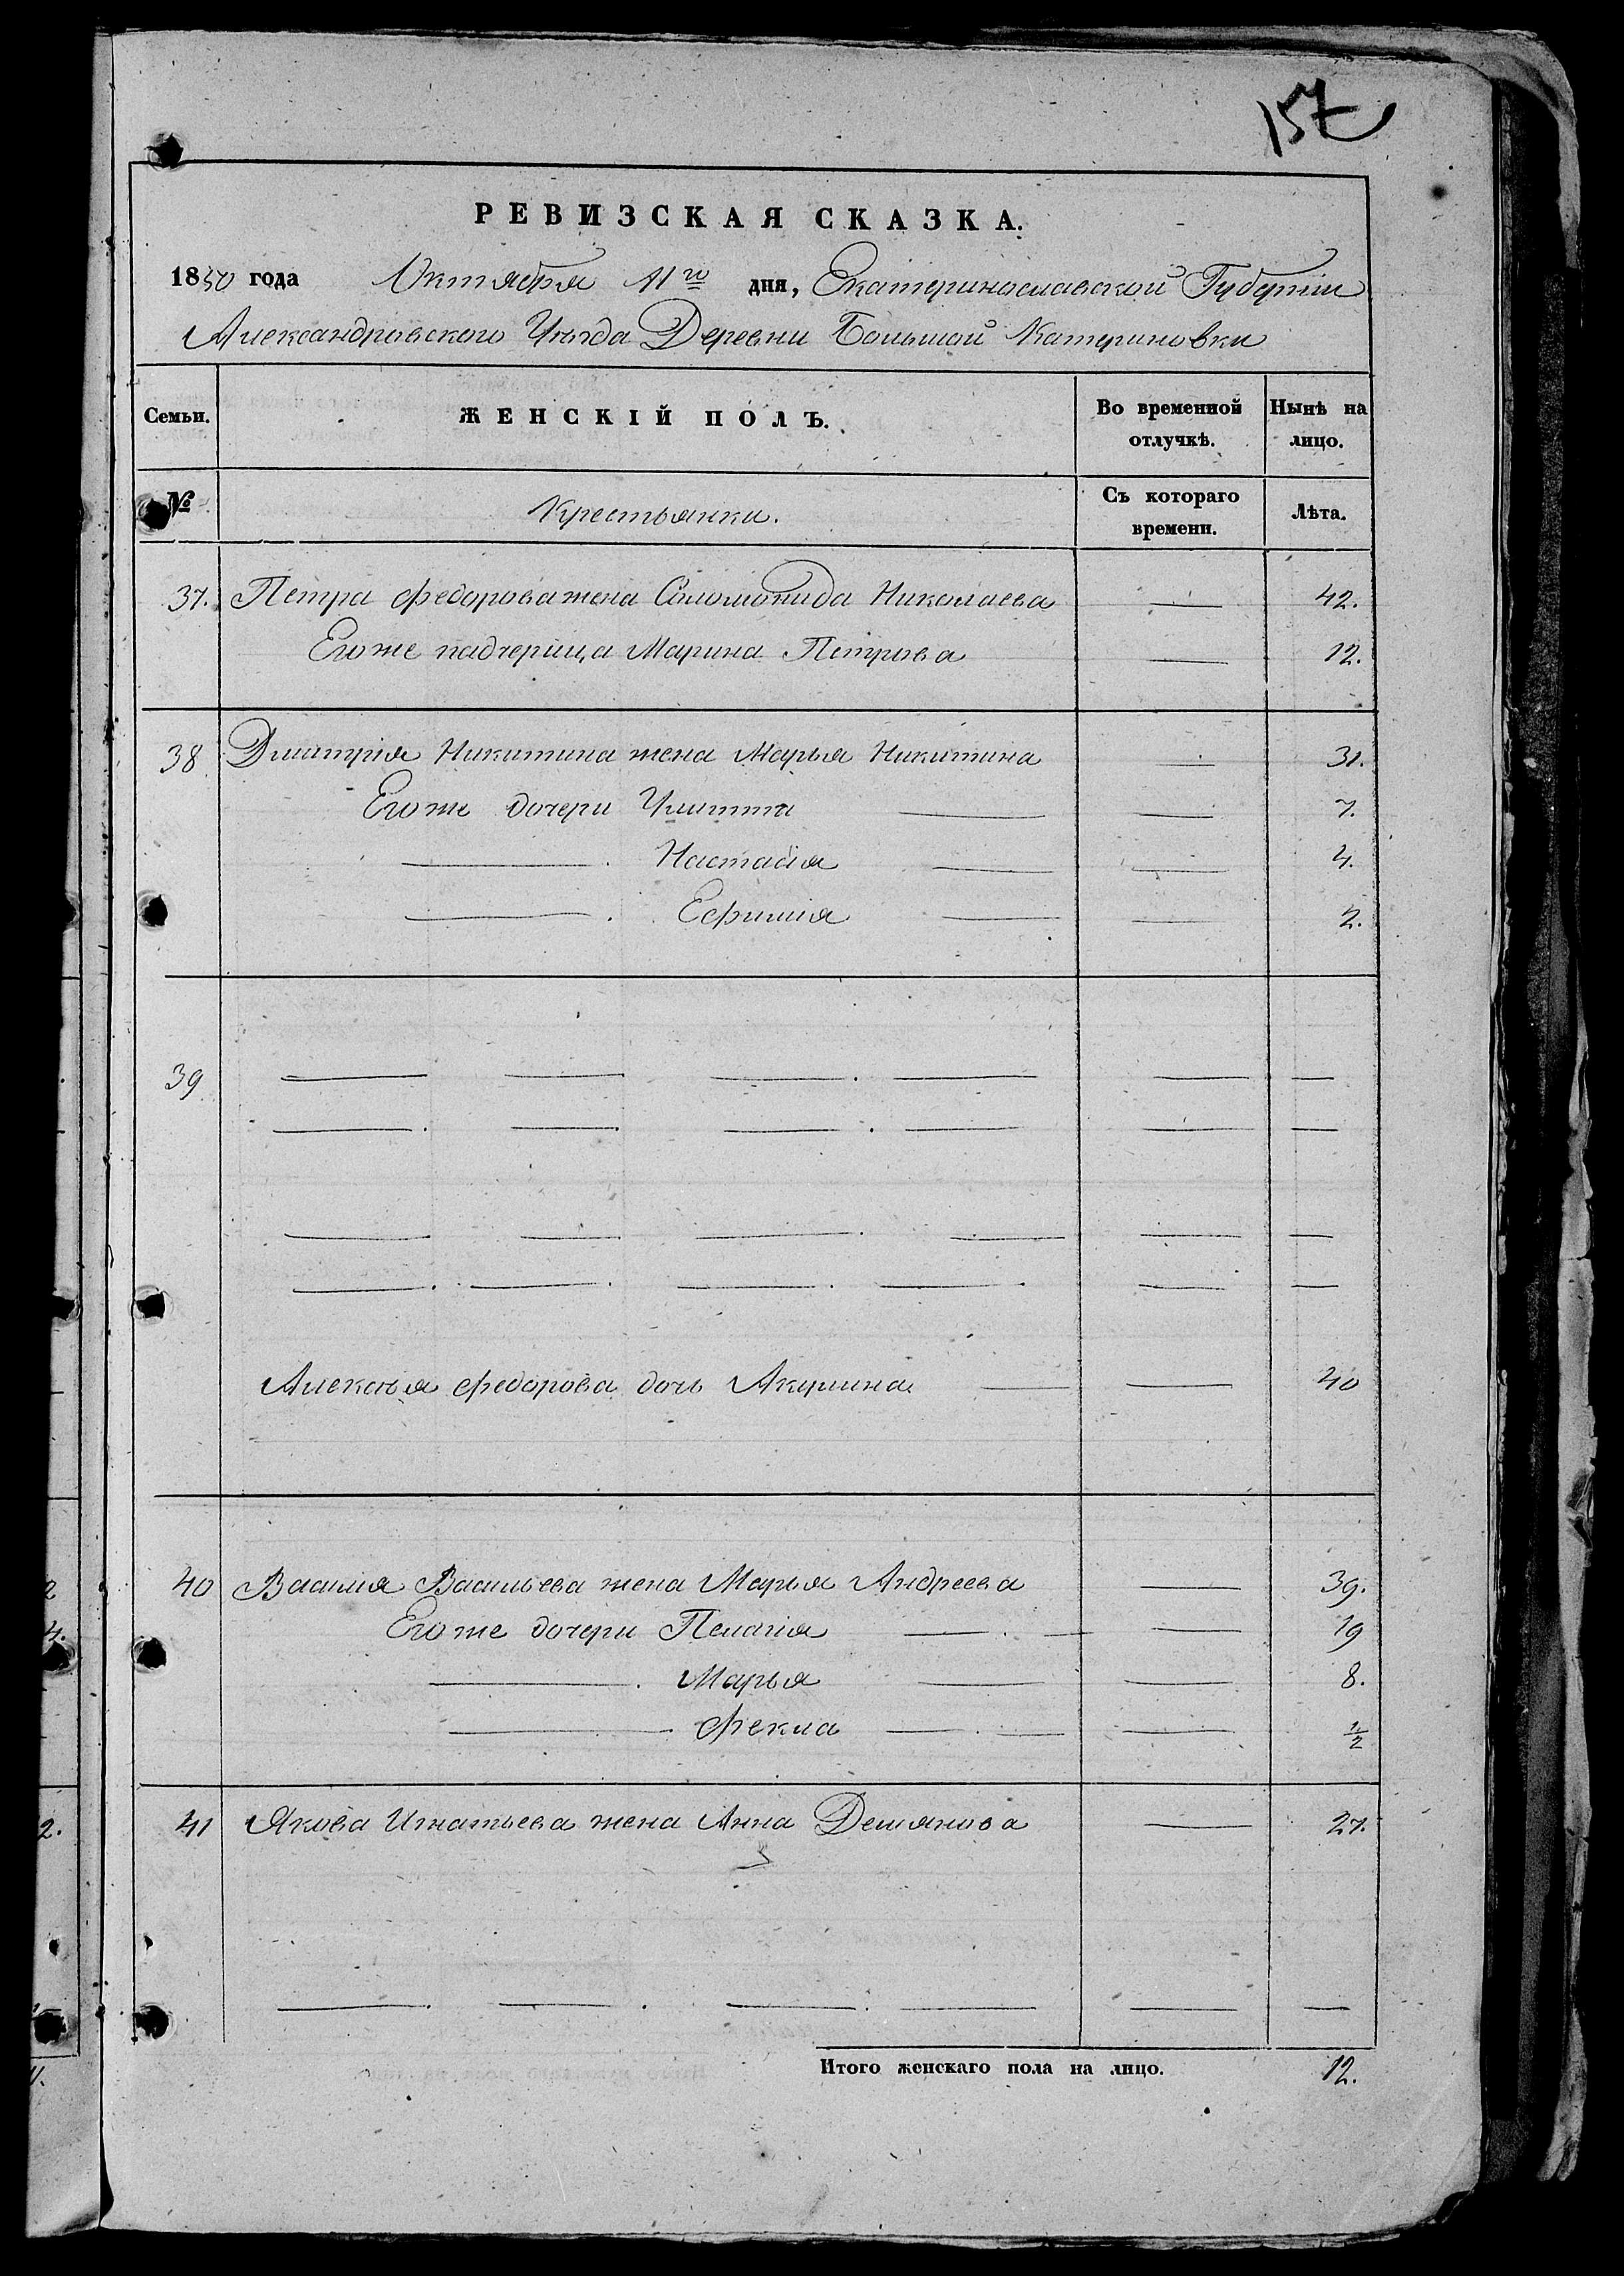 157
РЕВИЗСКАЯ СКАЗКА.
1850 года Октября 11го дня, Екатеринославской Губерніи
Александровского Уѣзда Деревни Большой Катериновки
Семьи. ЖЕНСКІЙ ПОЛЪ. Во временной отлучкѣ. Нынѣ на лицо.
№ Крестьянки. Съ котораго времени. Лѣта.
37. Петра Федорова жена Соломонида Николаева — 42.
Его же падчерица Марина Петрова — 12.
38 Дмитрія Никитина жена Марья Никитина — 31.
Его же дочери Улитта — — 7.
— Настасія — — 4.
— Ефимія — — 2.
39 — — — — — —
— — — — — —
— — — — — —
— — — — — —
Алексѣя Федорова дочь Акулина — — 40
40 Василія Васильева жена Марья Андреева — 39.
Его же дочери Пелагія — — — 19
— Марья — — 8.
— Фекла — — — 1/2
41 Якова Игнатьева жена Анна Демянова — 27.
— — — — — —
Итого женскаго пола на лицо. 12.
2
4.
2.